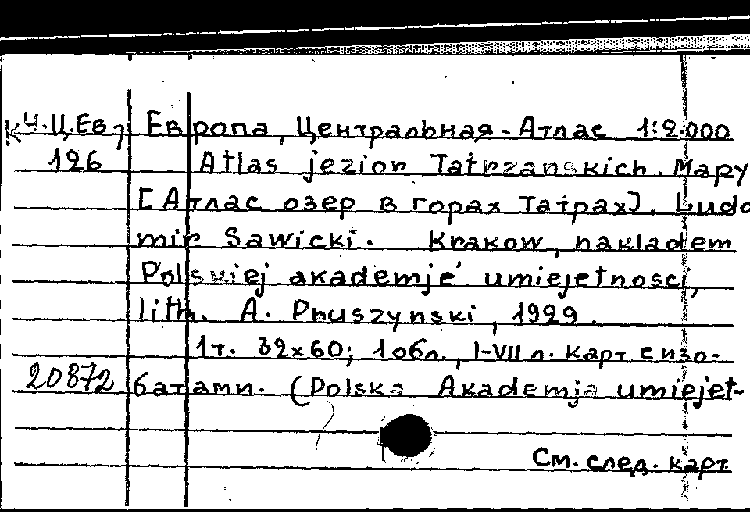 К Ч.Ц.Ев7 Европа, Центральная - Атлас 1:2.000
126 Atlas jezior Tatrzanskich. Mapy
[Атлас озер в горах Татрах]. Ludo
mir Sawicki. Krakow, nakladem
Polskiej akademje umiejetnosci,
lith. A. Pruszynski, 1929.
1т. 32х60; 1 обл., I-VII л. карт с изо-
20872 батами. (Polska Akademja umiejet-
См. след. карт.